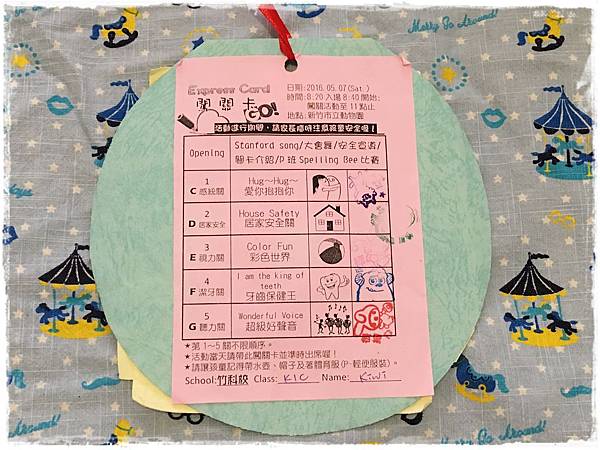 Merry Go Around!
Express Card
闖關卡 GO!
日期:2016.05.07(Sat.)
時間:8:20入場8:40開始;
闖關活動至11點止
地點:新竹市立動物園
活動進行期間,請家長隨時注意孩童安全喔!
Opening
Stanford song/大會舞/安全宣導/
關卡介紹/P班Spelling Bee比賽
1
C 感統關
Hug~Hug~
愛你抱抱你
2
D 居家安全
House Safety
居家安全關
3
E 視力關
Color Fun
彩色世界
4
F 潔牙關
I am the king of
teeth
牙齒保健王
5
G 聽力關
Wonderful Voice
超級好聲音
★第1~5關不限順序。
★活動當天請帶此闖關卡並準時出席喔!
★請讓孩童記得帶水壺、帽子及著體育服(P-輕便服裝)。
School:竹科校 Class: K1C Name: Kiwi
Merry Go Around!